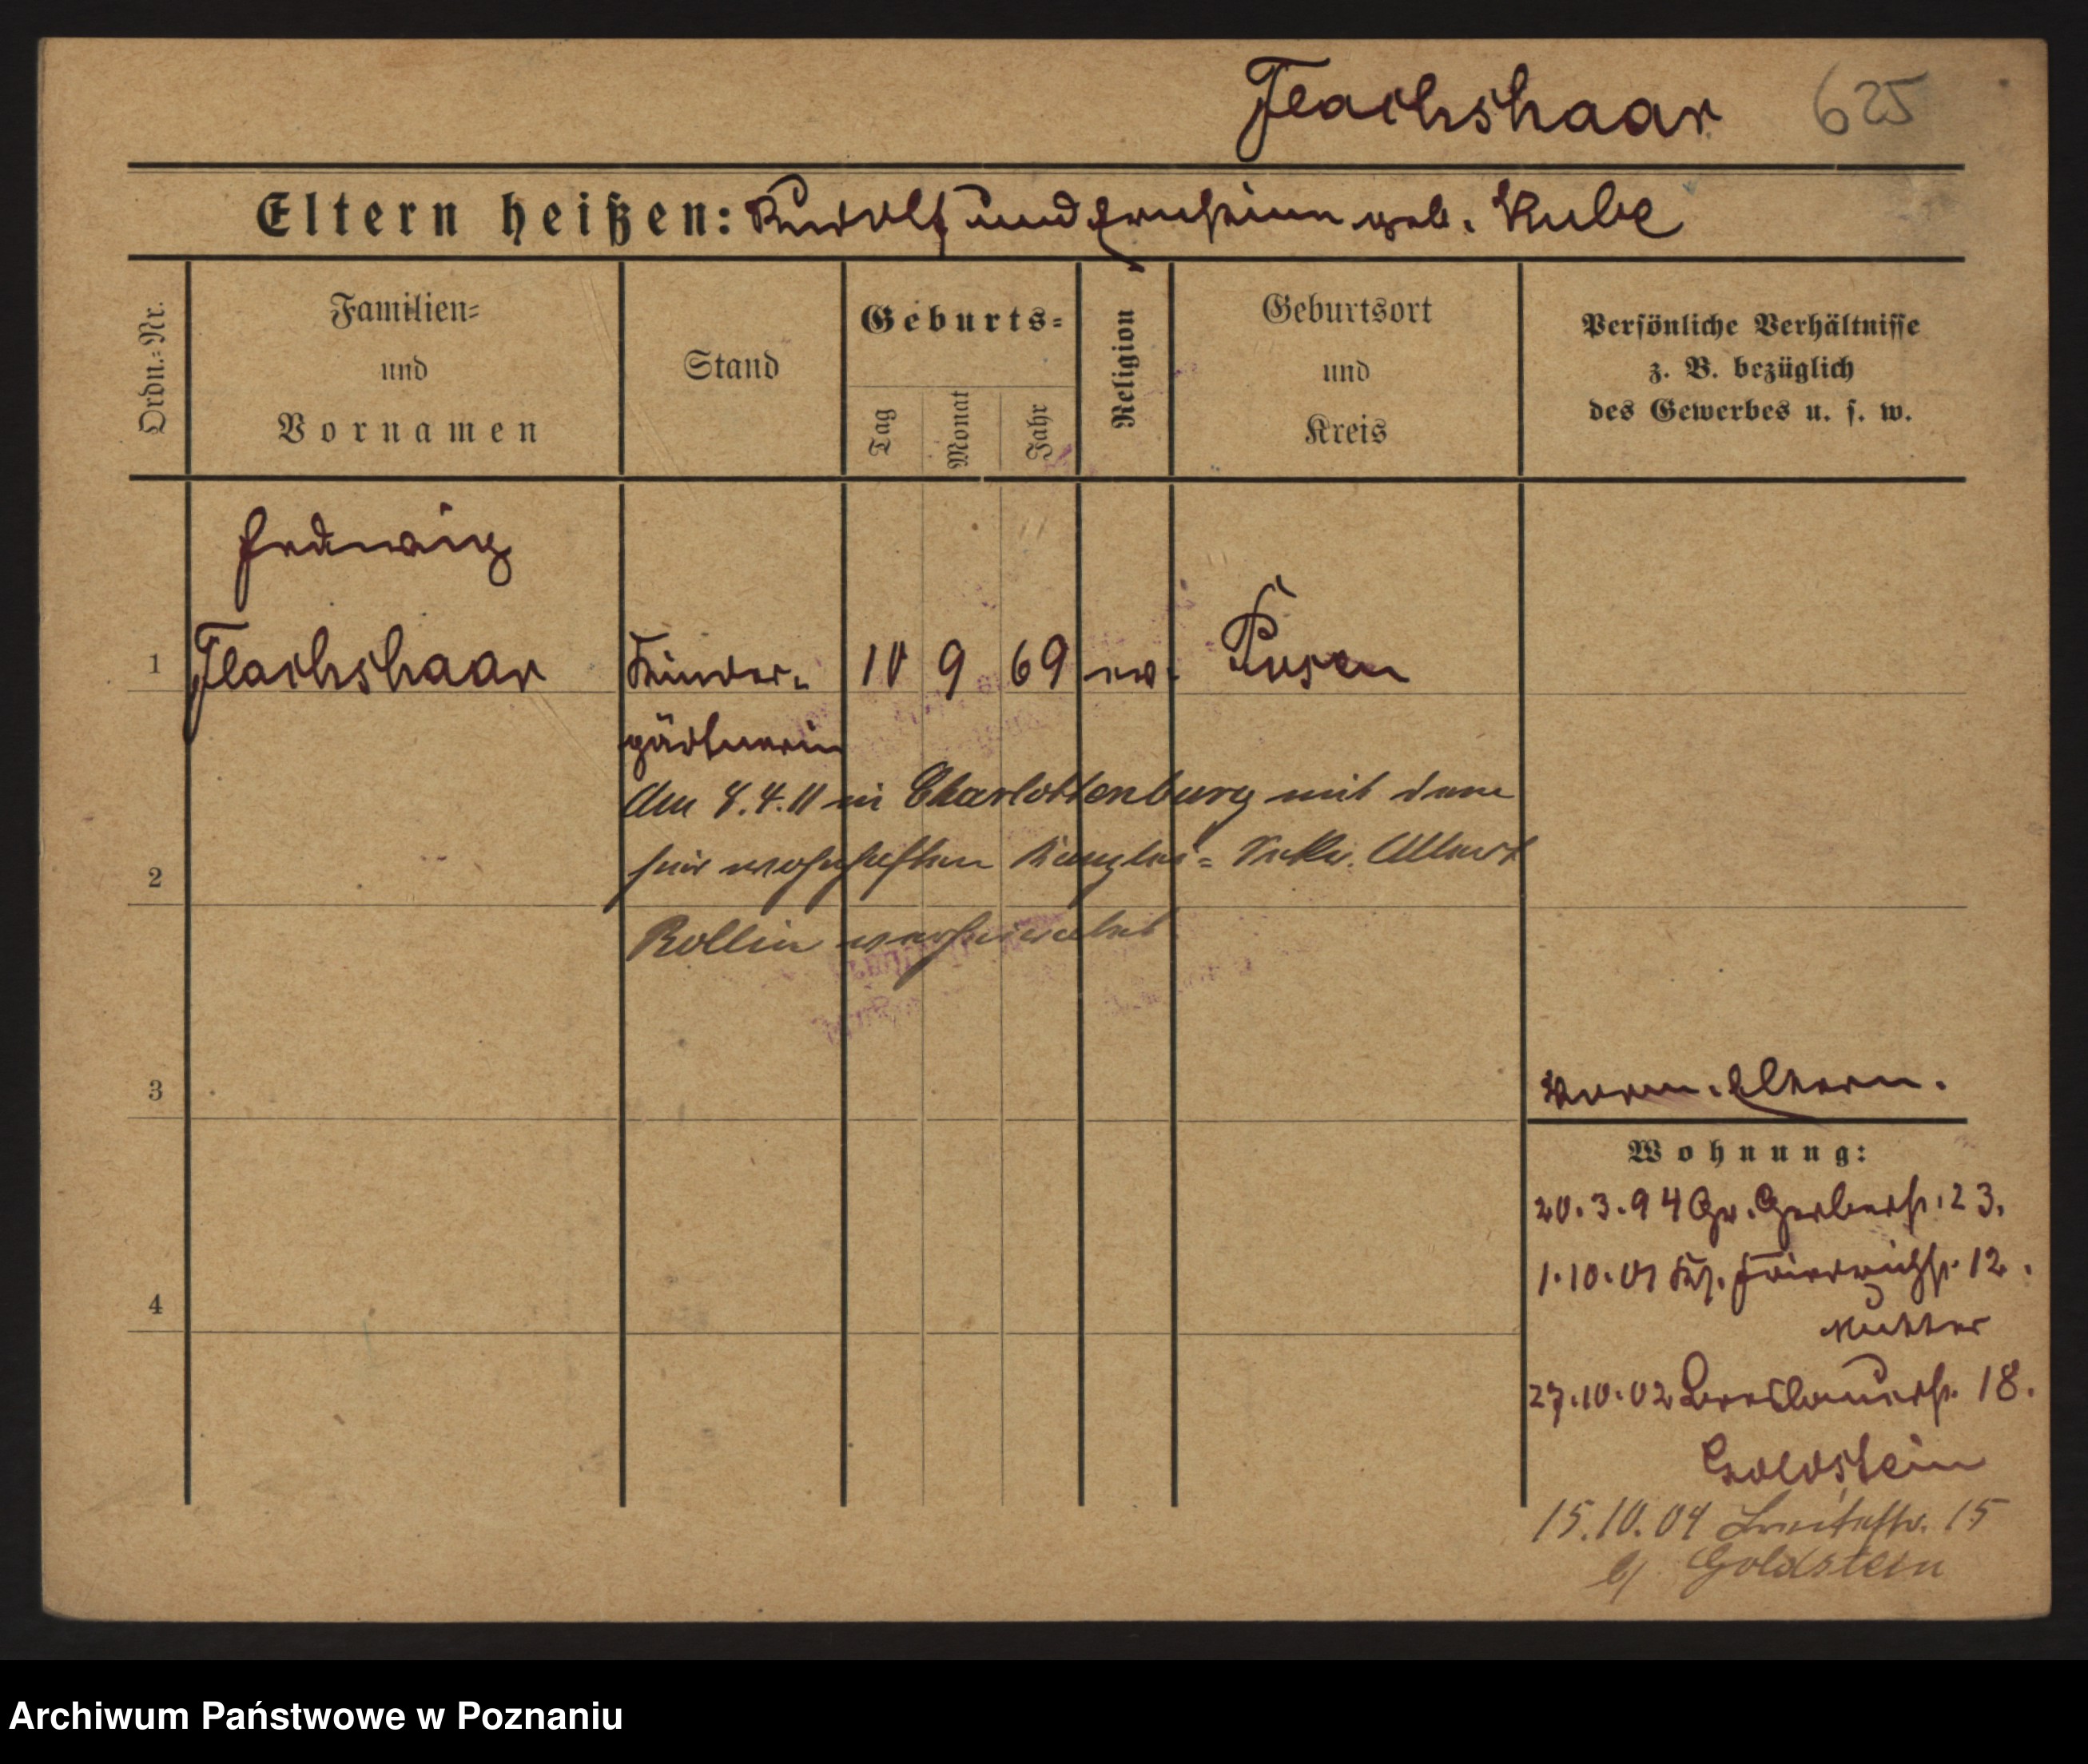 Flachshaar 625
Eltern heißen: Rudolf und Ernestine geb. Kube
Ordn.=Nr.
Familien=
und
Vornamen
Stand
Geburts=
Tag
Monat
Jahr
Religion
Geburtsort
und
Kreis
Persönliche Verhältnisse
z. B. bezüglich
des Gewerbes u. s. w.
Hedwig
1 Flachshaar Kinder- 10 9 69 ev. Posen
gärtnerin
Am 8.4.11 in Charlottenburg mit dem
hier wohnhaften Kanzlei= Sekr. Albert
2
Rollin verheiratet
3
Vorm. Eltern.
Wohnung:
20.3.94 Gr. Gerberstr. 23.
1.10.01 Friedrichstr. 12.
Mutter
4
27.10.02 Breslauerstr. 18.
Goldstein
15.10.04 Breitestr. 15
b/ Goldstein
Archiwum Państwowe w Poznaniu